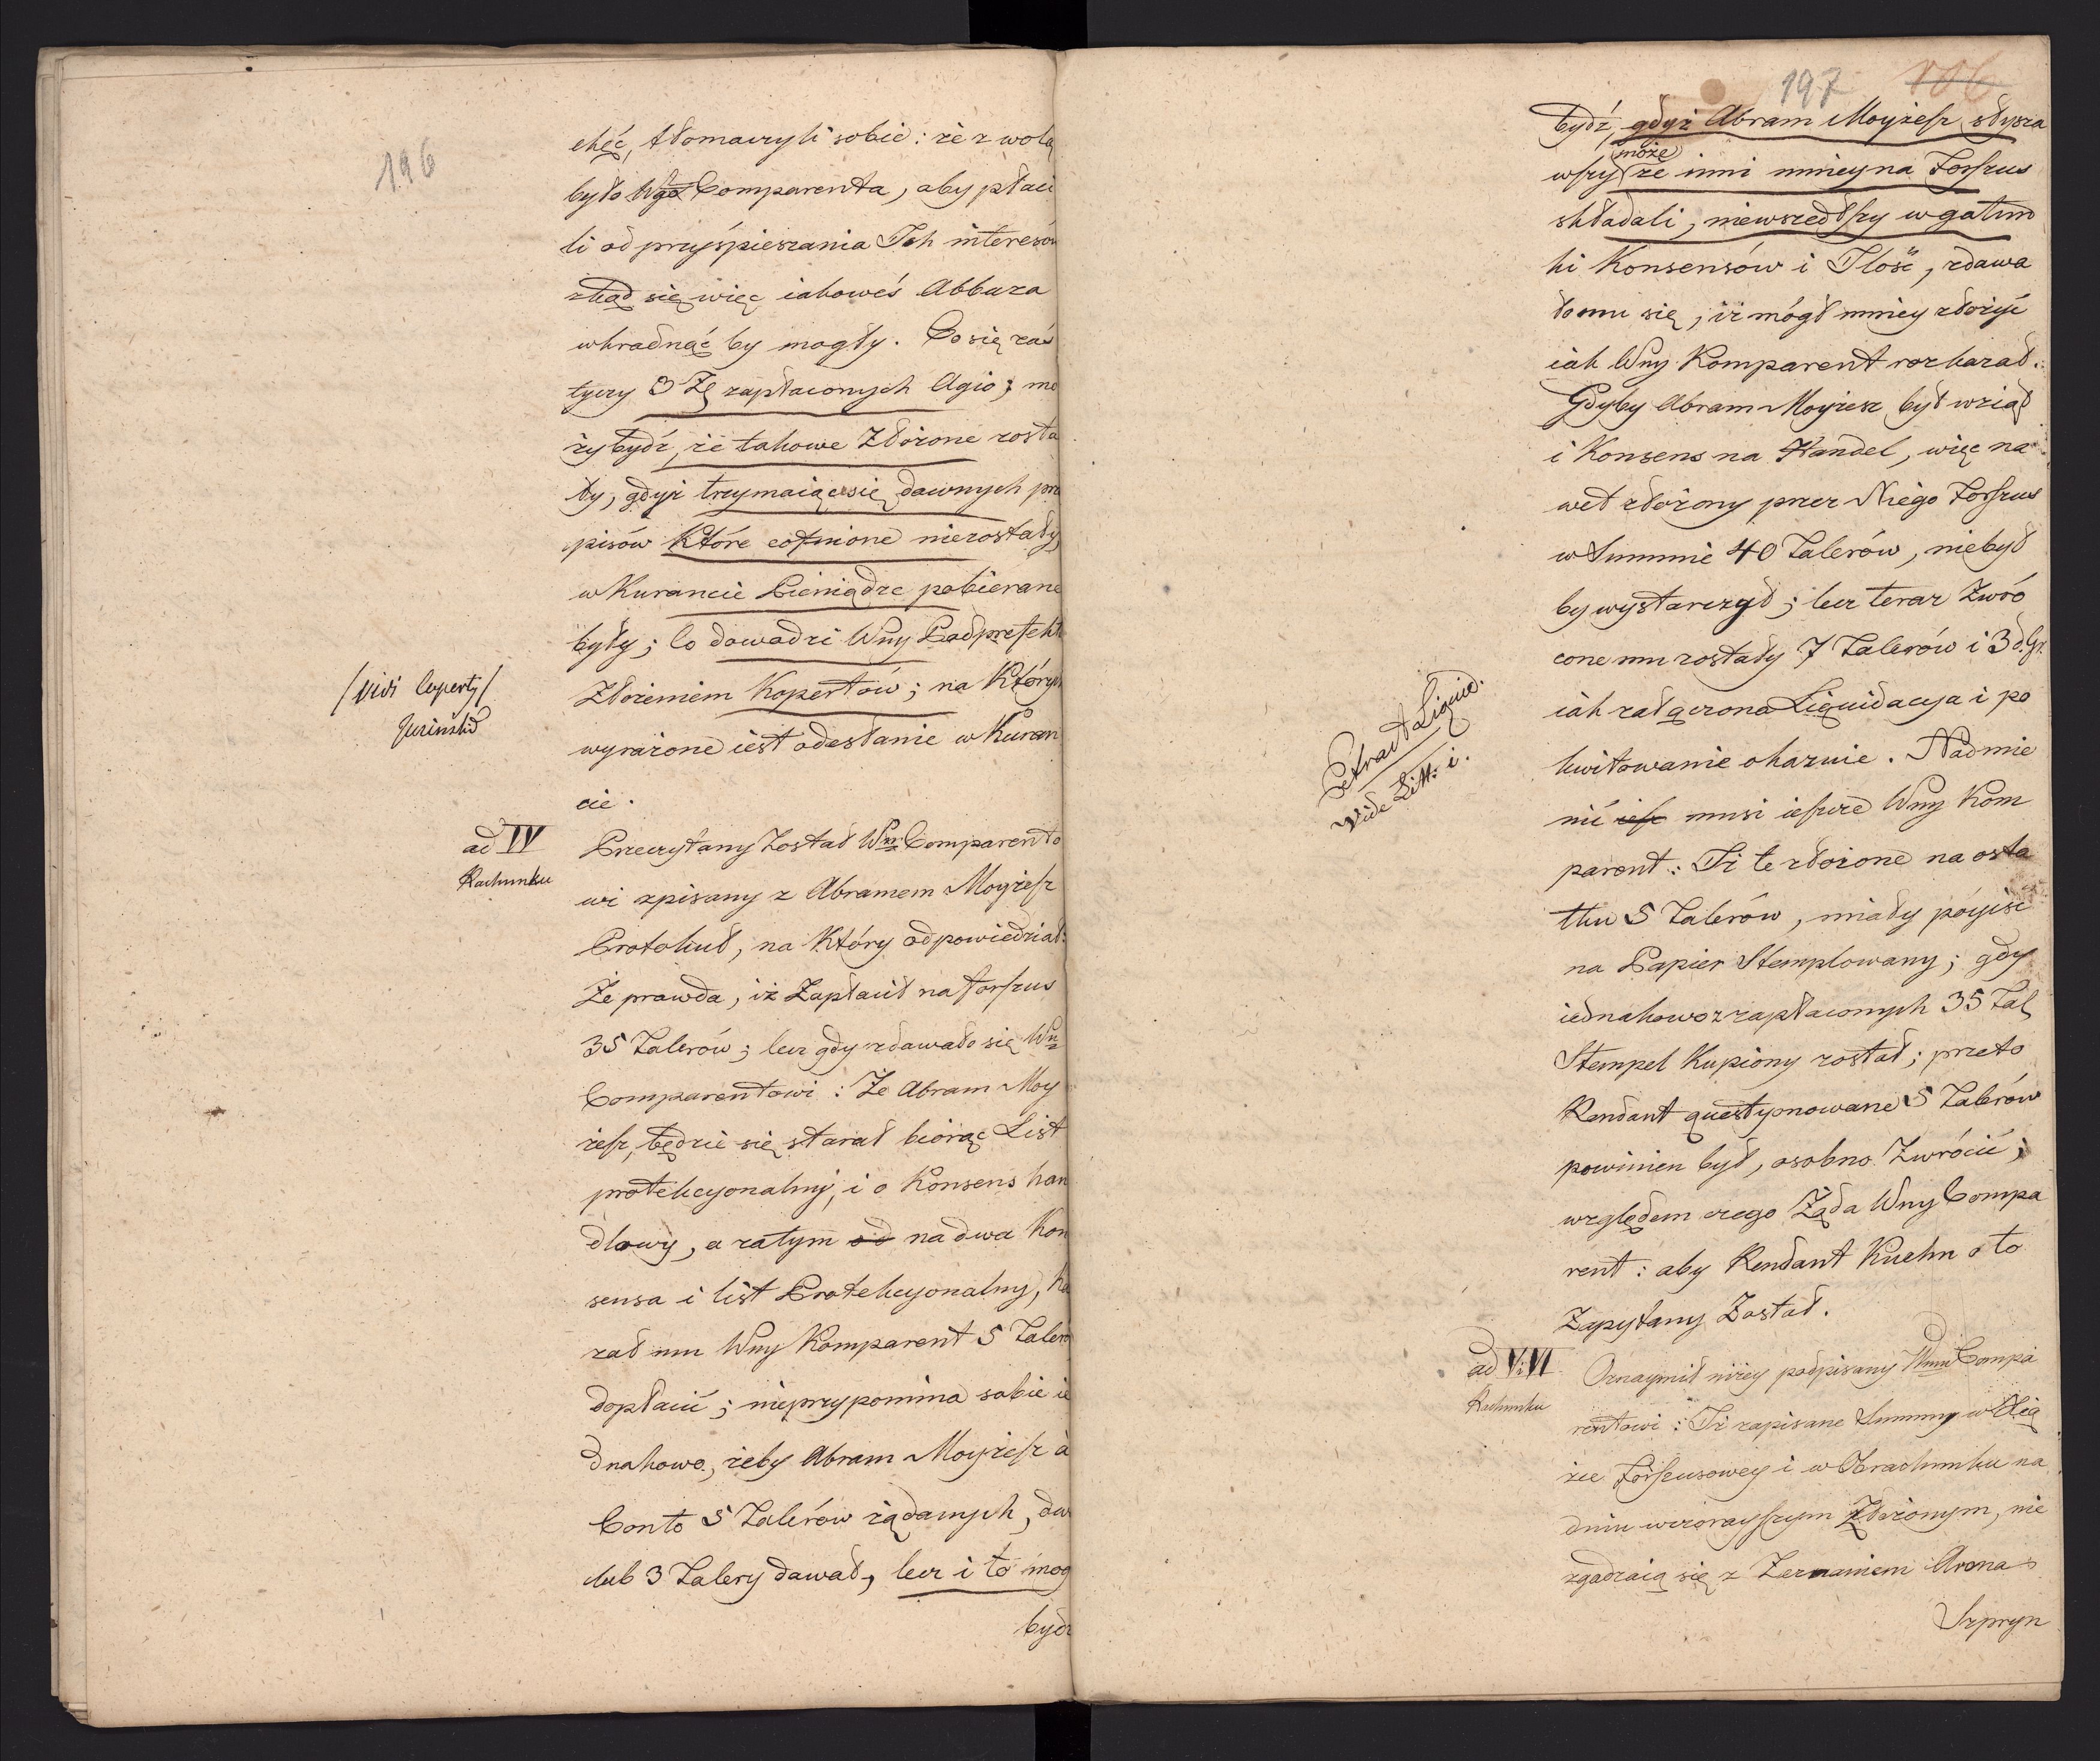 196
chęć, tłomaczyli sobie: że z wolą
było Wgo Comparenta, aby płaci
li od przyśpieszania Ich interesów
zkąd się więc iakoweś Abbuza
wkradnąć by mogły. Co się zaś
tyczy 3 Zł zapłaconych Agio; mo
ży bydź, że takowe Złożone zosta
ły, gdyż trzymaiąc się dawnych prze
pisów które cofnione niezostały,
w Kurancie Pieniądze pobierane
były; Co dowadzi Wny Podprefekt
Złożeniem Kopertów; na Których
wyrażone iest odesłanie w Kuran
cie.
/Vidi Coperty/
ad IV
Rachunku
Przeczytany Został Wmu Comparento
wi spisany z Abramem Moyżesz
Protokuł, na Który odpowiedział:
Że prawda, iż Zapłacił na forszus
35 Talerów; lecz gdy zdawało się Wu
Comparentowi: Że Abram Moy
żesz, będzie się starał biorąc List
protekcyonalny, i o Konsens han
dlowy, a zatym od na dwa Kon
sensa i list Protekcyonalny, ka
zał mu Wny Komparent 5 Taleró
dopłacić; nieprzypomina sobie ie
dnakowo, żeby Abram Moyżesz à
Conto 5 Talerów żądanych, dwa
lub 3 Talery dawał, lecz i to mog
bydź
197 106
bydź, gdyż Abram Moyżesz słysza
wszy może że inni mniey na Forszus
składali, niewszedłszy w gatun
ki Konsensów i Ilość, zdawa
ło mu się, iż mógł mniey złożyć
iak Wny Komparent rozkazał.
Gdyby Abram Moyżesz był wziął
i Konsens na Handel, więc na
wet złożony przez Niego Forszus
w Summie 40 Talerów, niebył
by wystarczył; lecz teraz Zwró
cone mu zostały 7 Talerów i 3 d.Gr.
iak załączona Liquidacya i po
kwitowanie okazuie. Nadmie
nić iesz musi ieszcze Wny Kom
parent: Iż te złożone na osta
tku 5 Talerów, miały póyiść
na Papier Stemplowany; gdy
iednakowoz zapłaconych 35 Tal
Stempel Kupiony został; przeto
Rendant questyonowane 5 Talerów
powinien był, osobno Zwrócić;
względem czego Żąda Wny Compa
rent: aby Rendant Kuehn o to
Zapytany Został.
Petract A Liquid.
Vide Litt: i.
ad V i VI
Rachunku
Oznaymił niżey podpisany Wmu Compa
rentowi: Iż zapisane Summy w Xią
żce Forszusowey i w Obrachunku na
dniu wczorayszym Złożonym, nie
zgadzaią się z Zeznaniem Arona
Szpryn